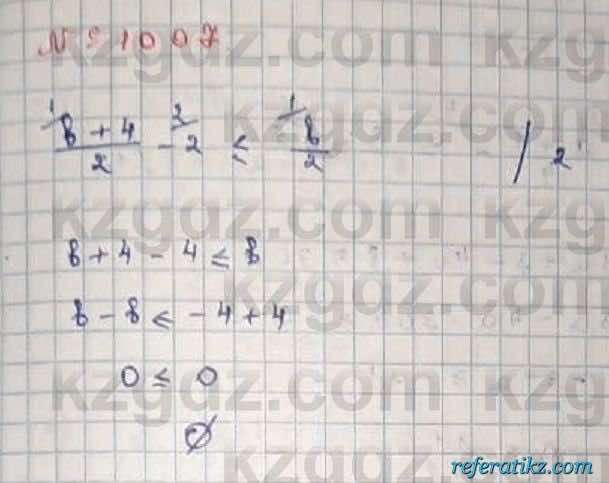 № 1007
1/ (в + 4)/2 - 2/ 2 ≤ 1/ в/2 / 2
в + 4 - 4 ≤ в
в - в ≤ - 4 + 4
0 ≤ 0
∅
kzgdz.com
referatikz.com